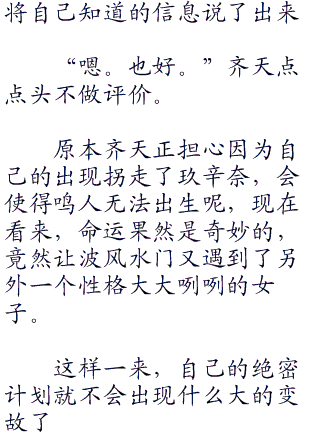 将自己知道的信息说了出来
“嗯。也好。”齐天点
点头不做评价。
原本齐天正担心因为自
己的出现拐走了玖辛奈，会
使得鸣人无法出生呢，现在
看来，命运果然是奇妙的，
竟然让波风水门又遇到了另
外一个性格大大咧咧的女
子。
这样一来，自己的绝密
计划就不会出现什么大的变
故了